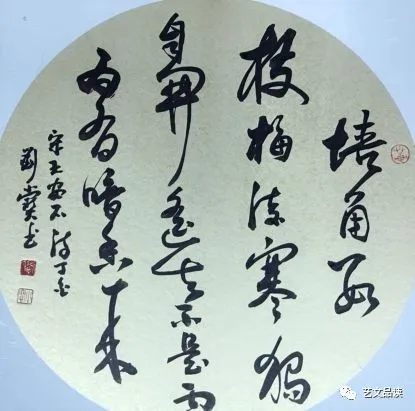 墙角数
枝梅凌寒独
自開遥知不是雪
为有暗香来
宋王安石诗丁酉
艺文品牍